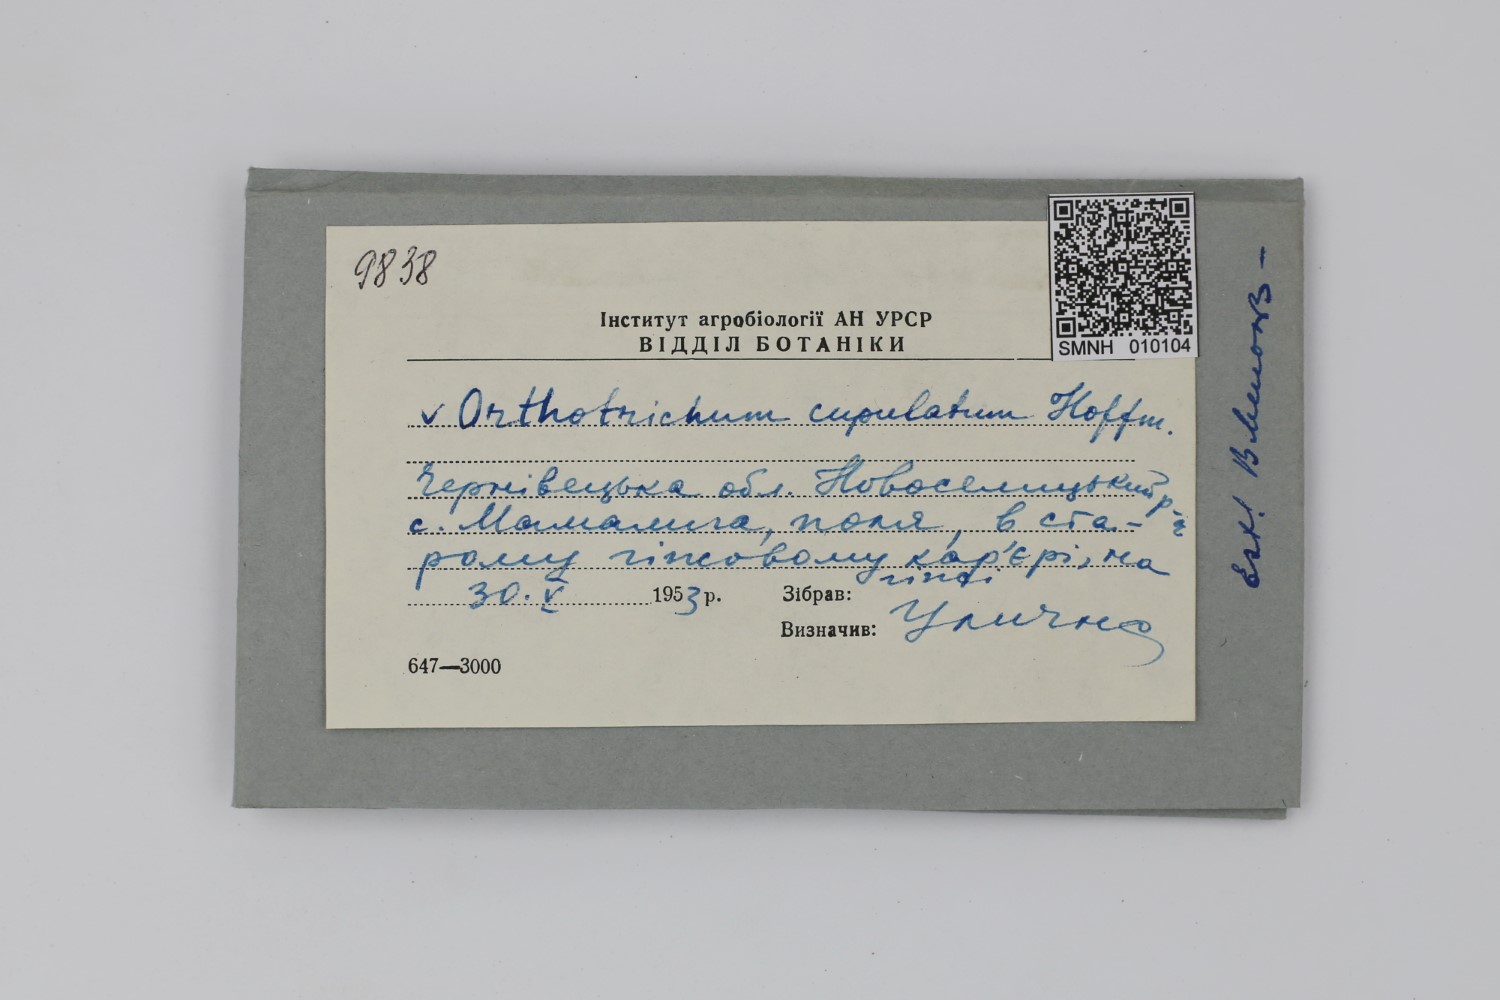 9838
SMNH 010104
Інститут агробіології АН УРСР
ВІДДІЛ БОТАНІКИ
v Orthotrichum cupulatum Hoffm.
Чернівецька обл. Новоселицький р-н
с. Мамалига, поля, в ста-
рому гіпсовому кар'єрі, на
гіпсі
30.V 1953 р. Зібрав:
Визначив: Уличко
647—3000